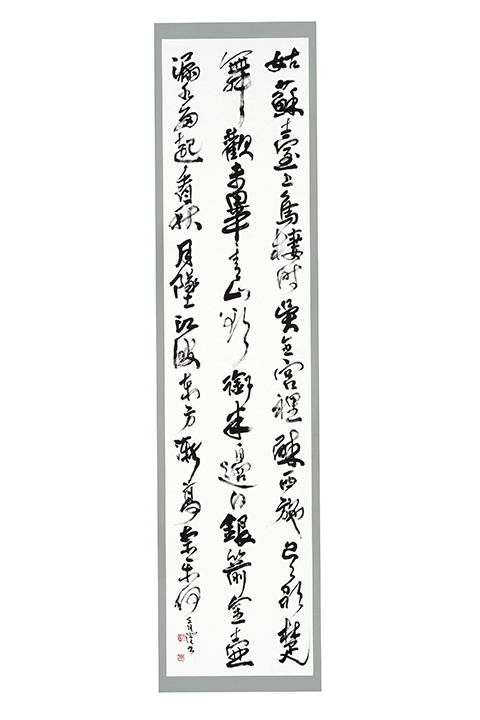 姑蘇臺上烏棲時吳王宮裡醉西施吳歌楚
舞歡未畢青山欲銜半邊日銀箭金壺
漏水多起看秋月墜江波東方漸高奈樂何